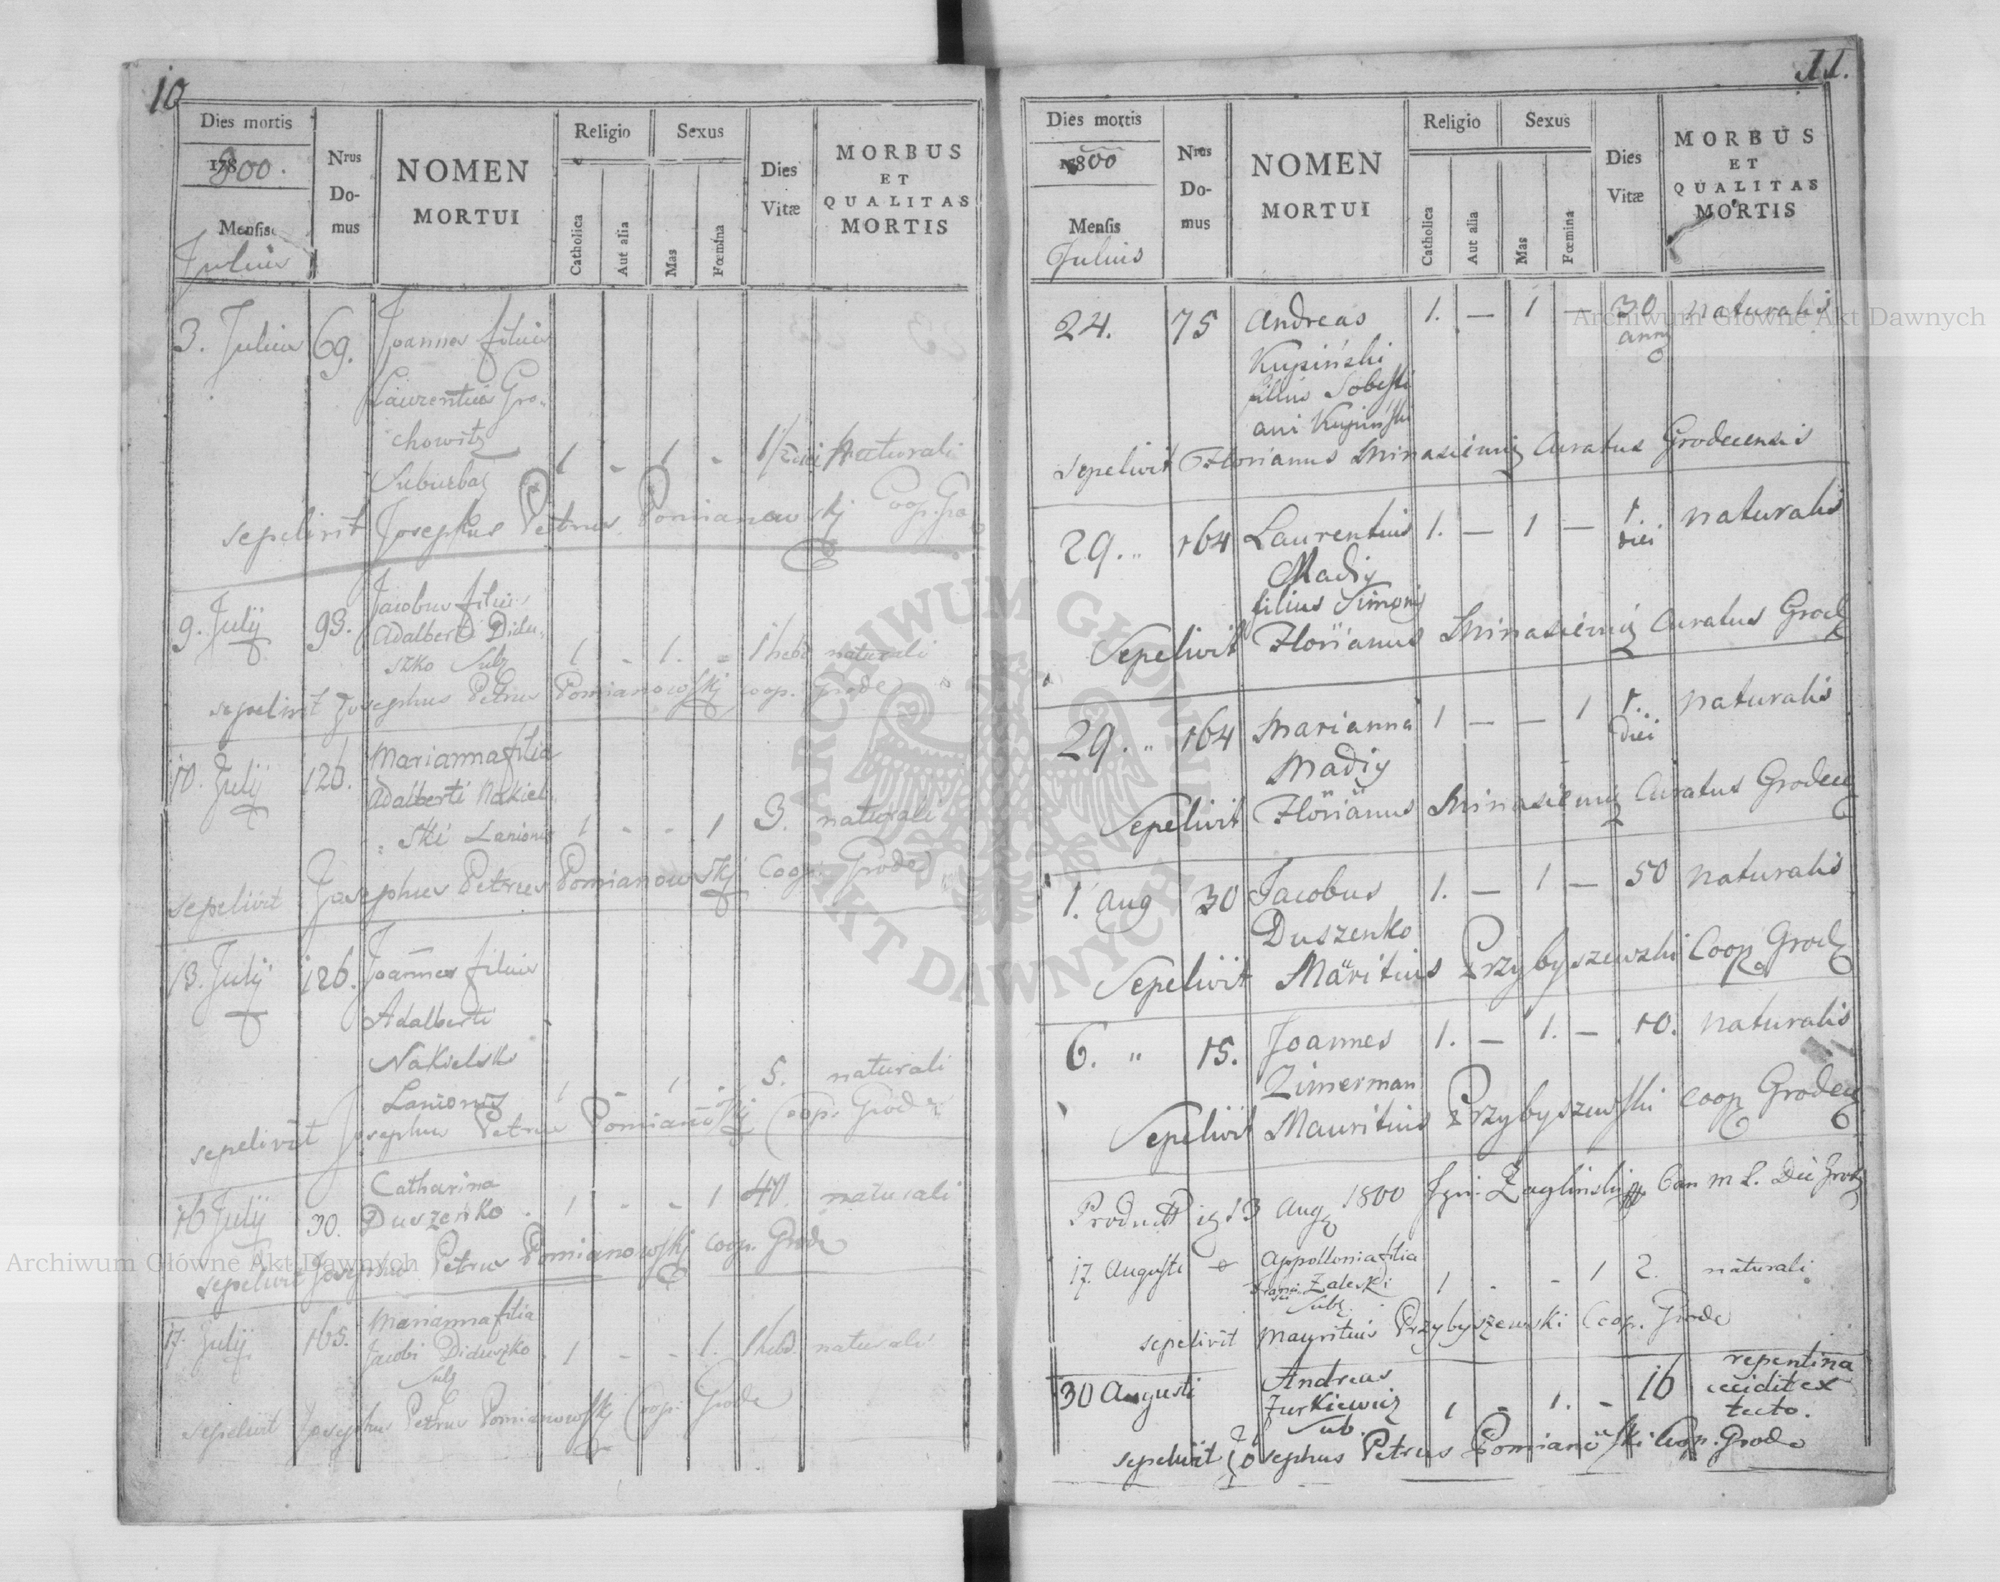 10
Dies mortis
1800.
Mensis
Julius
Nrus
Do-
mus
NOMEN
MORTUI
Religio
Catholica
Aut alia
Sexus
Mas
Fœmina
Dies
Vitæ
MORBUS
ET
QUALITAS
MORTIS
3. Julius 69. Joannes filius
Laurentius Gro-
chowitz
Suburbaz 1 - 1 - naturali
sepelivit Josephus Petrus Pomianowskj Coop. Gro
9. July 93. Jacobus filius
Adalberti Didu-
szko Subz 1 - 1. - 1 hebd naturali
sepelivit Josephus Petrus Pomianowskj coop. Grode
10. July 126. Marianna filia
Adalberti Nakiel-
ski Lanionis 1 - - 1 3. naturali
sepelivit Josephus Petrus Pomianowskj Coop. Grode
13. July 126. Joannes filius
Adalberti
Nakielski
Lanionis 1 - 1 - 5. naturali
sepelivit Josephus Petrus Coop. Grode
16 July 30. Catharina
Duszenko 1 - - 1 40. naturali
sepelivit Josephus Petrus Pomianowskj coop. Grode
17. July 165. Marianna filia
Jacobi Diduszko 1 - - 1. 1 hebd. naturali
Subz
sepelivit Josephus Petrus Pomianowskj Coop. Grode
11.
Dies mortis
1800
Mensis
Julius
Nros
Do-
mus
NOMEN
MORTUI
Religio
Catholica
Aut alia
Sexus
Mas
Fœmina
Dies
Vitæ
MORBUS
ET
QUALITAS
MORTIS
24. 75 Andreas 1. — 1 — 30 naturalis
Kupiński
filius Sobesti
ani Kupiński
sepelivit Florianus Minasiewicz Curatus Grodecensis
29. " 164 Laurentius 1. — 1 — 1. naturalis
Madiy diei
filius Simonis
Sepelivit Florianus Minasiewicz Curatus Grodz
29. " 164 Marianna 1 — — 1 1. naturalis
Madiy diei
Sepelivit Florianus Minasiewicz Curatus Grodecz
1. Aug 30 Jacobus 1. — 1 — 50 naturalis
Duszenko
Sepelivit Mauritius Przybyszewski Coop Grodz
6. " 15. Joannes 1. — 1. — 10. naturalis
Zimerman
Sepelivit Mauritius Przybyszewski coop Grodecz
13 Augz 1800
17. Augusti Appollonia filia
Zaleski 1 - - 1 2. naturali
Subz
sepelivit Mauritius Przybyszewski Coop. Grode
30 Augusti Andreas 16 repentina
Jurkiewicz 1 - 1. - cecidit ex
Sub. tecto.
sepelivit Josephus Petrus Coop. Grode
Archiwum Główne Akt Dawnych
Archiwum Główne Akt Dawnych
ARCHIWUM GŁÓWNE AKT DAWNYCH